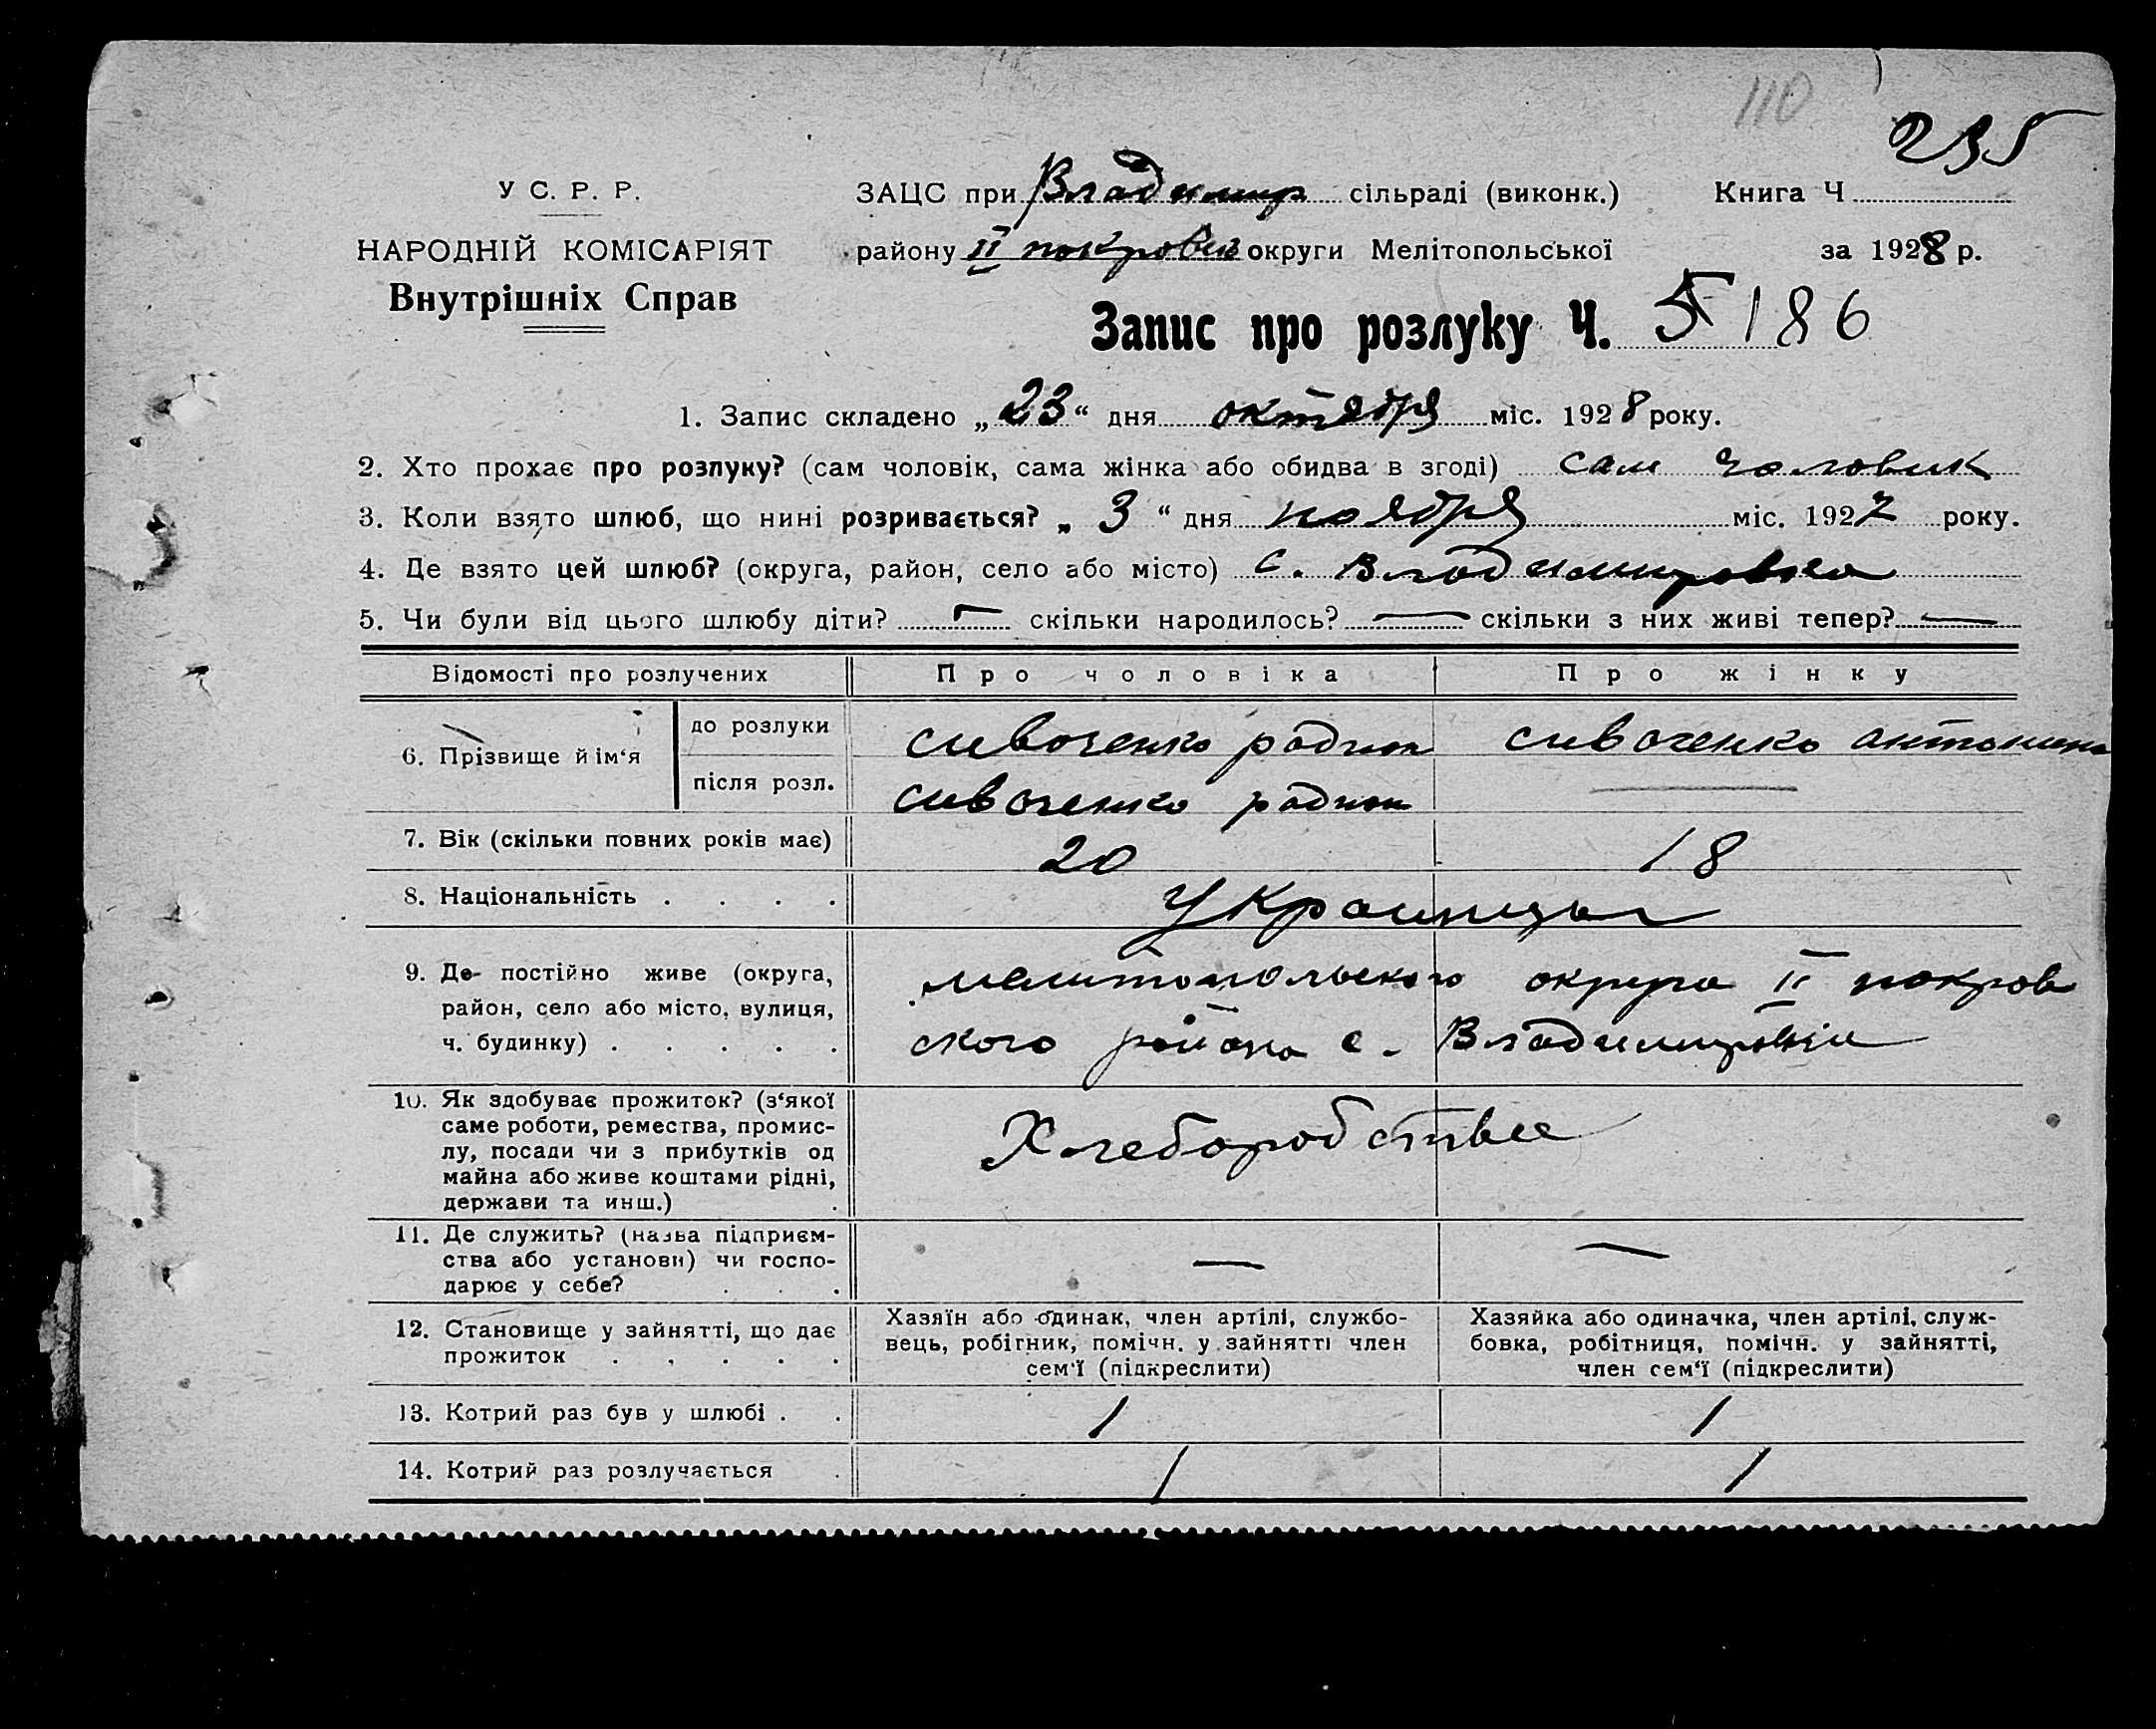 110
235
У С. Р. Р.
ЗАЦС при Владимир сільраді (виконк.) Книга Ч
НАРОДНІЙ КОМІСАРІЯТ
району II покровск округи Мелітопольської за 1928 р.
Внутрішніх Справ
Запис про розлуку Ч. 5 186
1. Запис складено „23“ дня октября міс. 1928 року.
2. Хто прохає про розлуку? (сам чоловік, сама жінка або обидва в згоді) сам чоловик
3. Коли взято шлюб, що нині розривається? „3“ дня ноября міс. 1927 року.
4. Де взято цей шлюб? (округа, район, село або місто) с. Владимировка
5. Чи були від цього шлюбу діти? — скільки народилось? — скільки з них живі тепер? —
Відомості про розлучених Про чоловіка Про жінку
6. Прізвище й ім‘я до розлуки сивоченко радион сивоченко антонина
після розл. сивоченко радион —
7. Вік (скільки повних років має) 20 18
8. Національність . . . . Украинцы
9. Де постійно живе (округа, мелитопольского округа II покров
район, село або місто, вулиця,
ч. будинку) . . . . . ского района с. Владимировки
10. Як здобуває прожиток? (з‘якої
саме роботи, ремества, промис- Хлеборобство
лу, посади чи з прибутків од
майна або живе коштами рідні,
держави та инш.) .
11. Де служить? (назва підприєм-
ства або установи) чи госпо- — —
дарює у себе? . . .
12. Становище у зайнятті, що дає
прожиток . . . . .
Хазяїн або одинак, член артілі, службо-
вець, робітник, помічн. у зайнятті член
сем‘ї (підкреслити)
Хазяйка або одиначка, член артілі, служ-
бовка, робітниця, помічн. у зайнятті,
член сем‘ї (підкреслити)
13. Котрий раз був у шлюбі . . 1 1
14. Котрий раз розлучається . 1 1